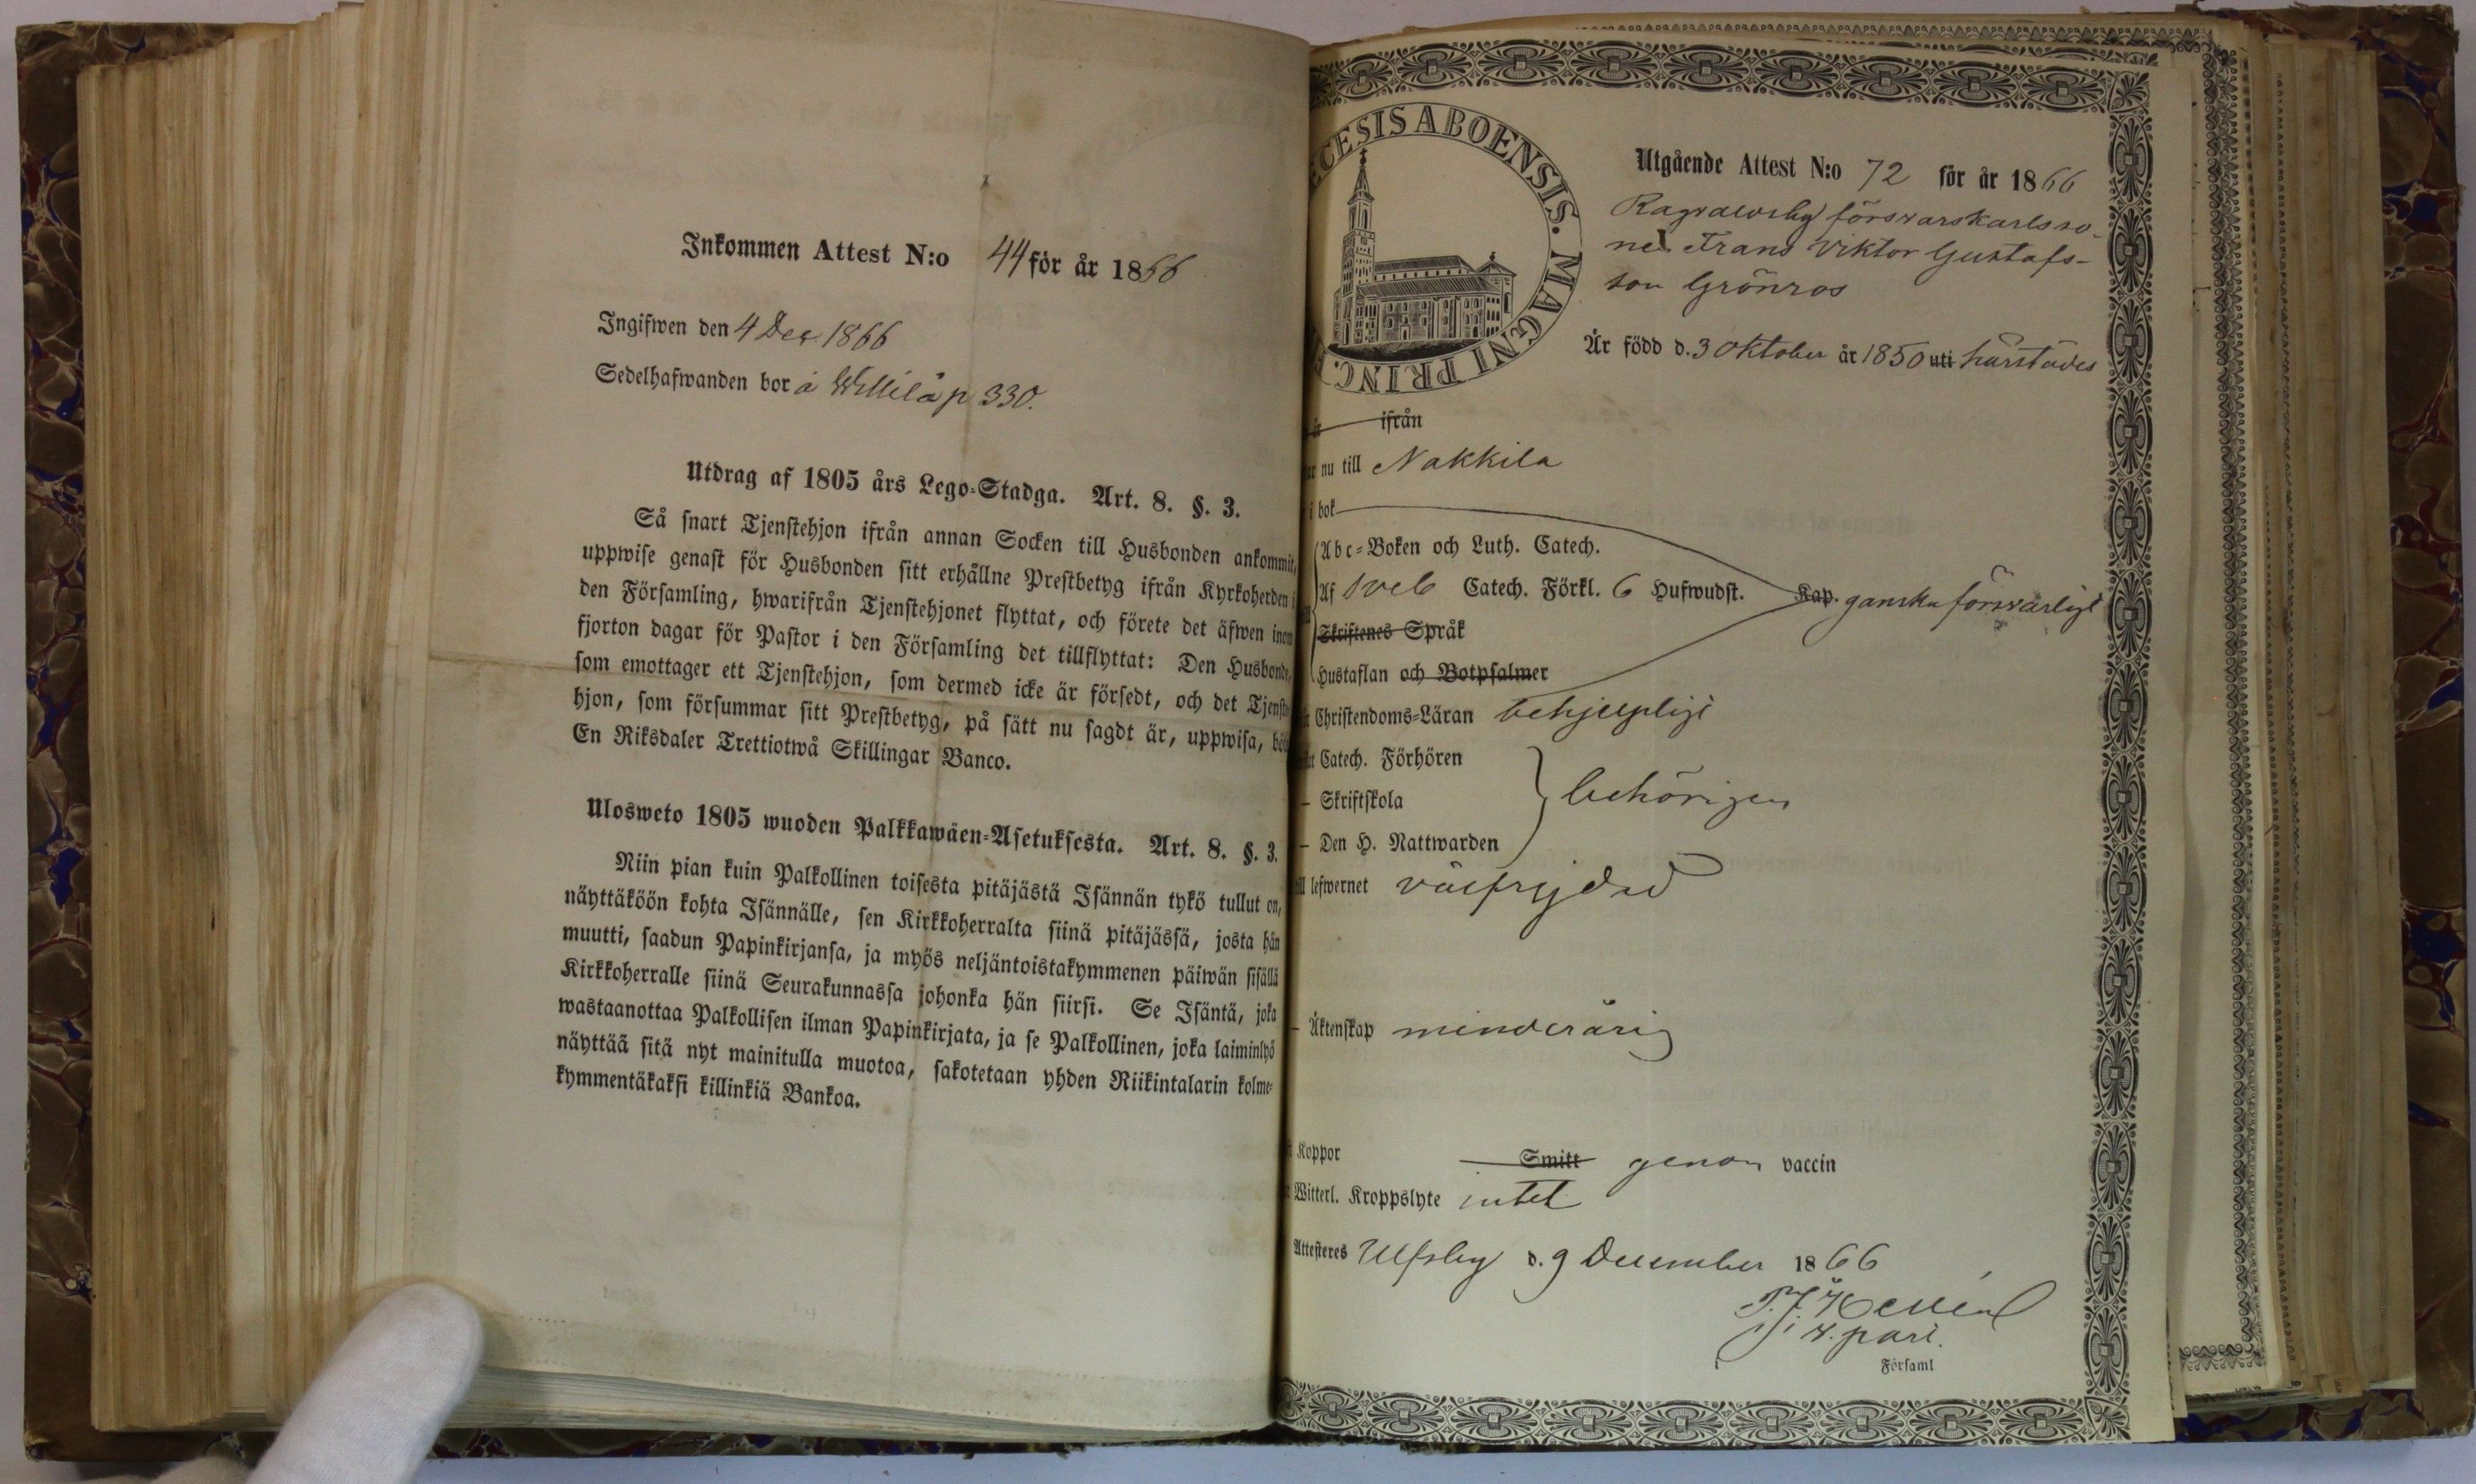 Inkommen Attest N:o 44 för år 1866
Ingifwen den 4 Dec. 1866
Sedelhafwanden bor å Willilä p 330.
Utdrag af 1805 års Lego-Stadga. Art. 8. §. 3.
Så snart Tjenstehjon ifrån annan Socken till Husbonden ankommit,
uppwise genast för Husbonden sitt erhållne Prestbetyg ifrån Kyrkoherden i
den Församling, hwarifrån Tjenstehjonet flyttat, och förete det äfwen inom
fjorton dagar för Pastor i den Församling det tillflyttat: Den Husbonde,
som emottager ett Tjenstehjon, som dermed icke är försedt, och det Tjenste-
hjon, som försummar sitt Prestbetyg, på sätt nu sagdt är, uppwisa, böte
En Riksdaler Trettiotwå Skillingar Banco.
Ulosweto 1805 wuoden Palkkawäen-Asetuksesta. Art. 8. §. 3.
Niin pian kuin Palkollinen toisesta pitäjästä Isännän tykö tullut on,
näyttäköön kohta Isännälle, sen Kirkkoherralta siinä pitäjässä, josta hän
muutti, saadun Papinkirjansa, ja myös neljäntoistakymmenen päiwän sisällä
Kirkkoherralle siinä Seurakunnassa johonka hän siirsi. Se Isäntä, joka
wastaanottaa Palkollisen ilman Papinkirjata, ja se Palkollinen, joka laiminlyö
näyttää sitä nyt mainitulla muotoa, sakotetaan yhden Riikintalarin kolme-
kymmentäkaksi killinkiä Bankoa.
CESIS ABOENSIS. MAGNI PRINC.
Utgående Attest N:o 72 för år 1866
Ragvaldsby försvarskarlsso-
nen Frans Viktor Gustafs-
son Grönros
Är född d. 3 Oktober år 1850 uti härstädes
ifrån
nu till Nakkila
i bok
Abc-Boken och Luth. Catech.
Af Sveb Catech. Förkl. 6 Hufwudst. Kap. ganska försvarligt
Skriftenes Språk
Hustaflan och Botpsalmer
Christendoms-Läran behjelpligt
Catech. Förhören
– Skriftskola behörigen
– Den H. Nattwarden
lefwernet välfrejdad
– Äktenskap minderårig
Koppor Smitt genom vaccin
Witterl. Kroppslyte intet
Attesteres Ulfsby d. 9 December 1866
Församl